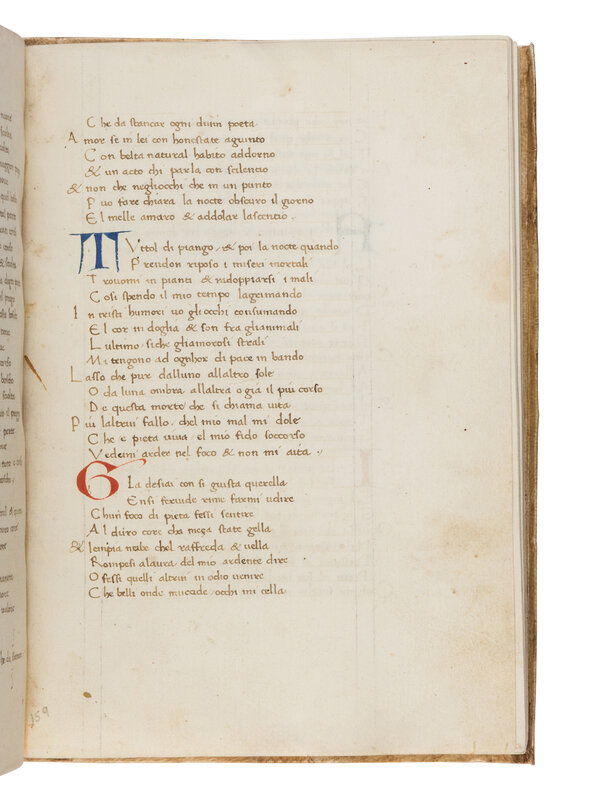 C he da stancar ogni diuin poeta
A mor se in lei con honestate agiunto
C on belta natural habito addorno
& un acto chi parla con scilencio
& non che negliocchi che in un punto
P uo fare chiara la nocte obscuro il giorno
E l melle amaro & addolar lascentio .
T Vttol di piango , & poi la nocte quando
P rendon riposo i miseri mortali
T rouomi in pianti & radoppiarsi i mali
C osi spendo il mio tempo lagrimando
I n tristi humori uo gliocchi consumando
E l cor in doglia & son fra glianimali
L ultimo , siche gliamorosi strali
M i tengono ad ognhor di pace in bando
L asso che pure dalluno allaltro sole
O da luna ombra allaltra o gia il piu corso
D e questa morte che si chiama uita
P iu laltrui fallo , chel mio mal mi dole
C he e pieta uiua , el mio fido soccorso
V edemi ardere nel foco & non mi aita .
G Ia desiai con si giusta querella
E nsi feruide rime farmi udire
C hun foco di pieta fessi sentire
A l duro core che mega state gella
& lempia nube chel raffreda & uella
R ompesi alaura del mio ardente dire
O fessi quelli altrui in odio uenire
C he belli onde mucade , occhi mi cella
159